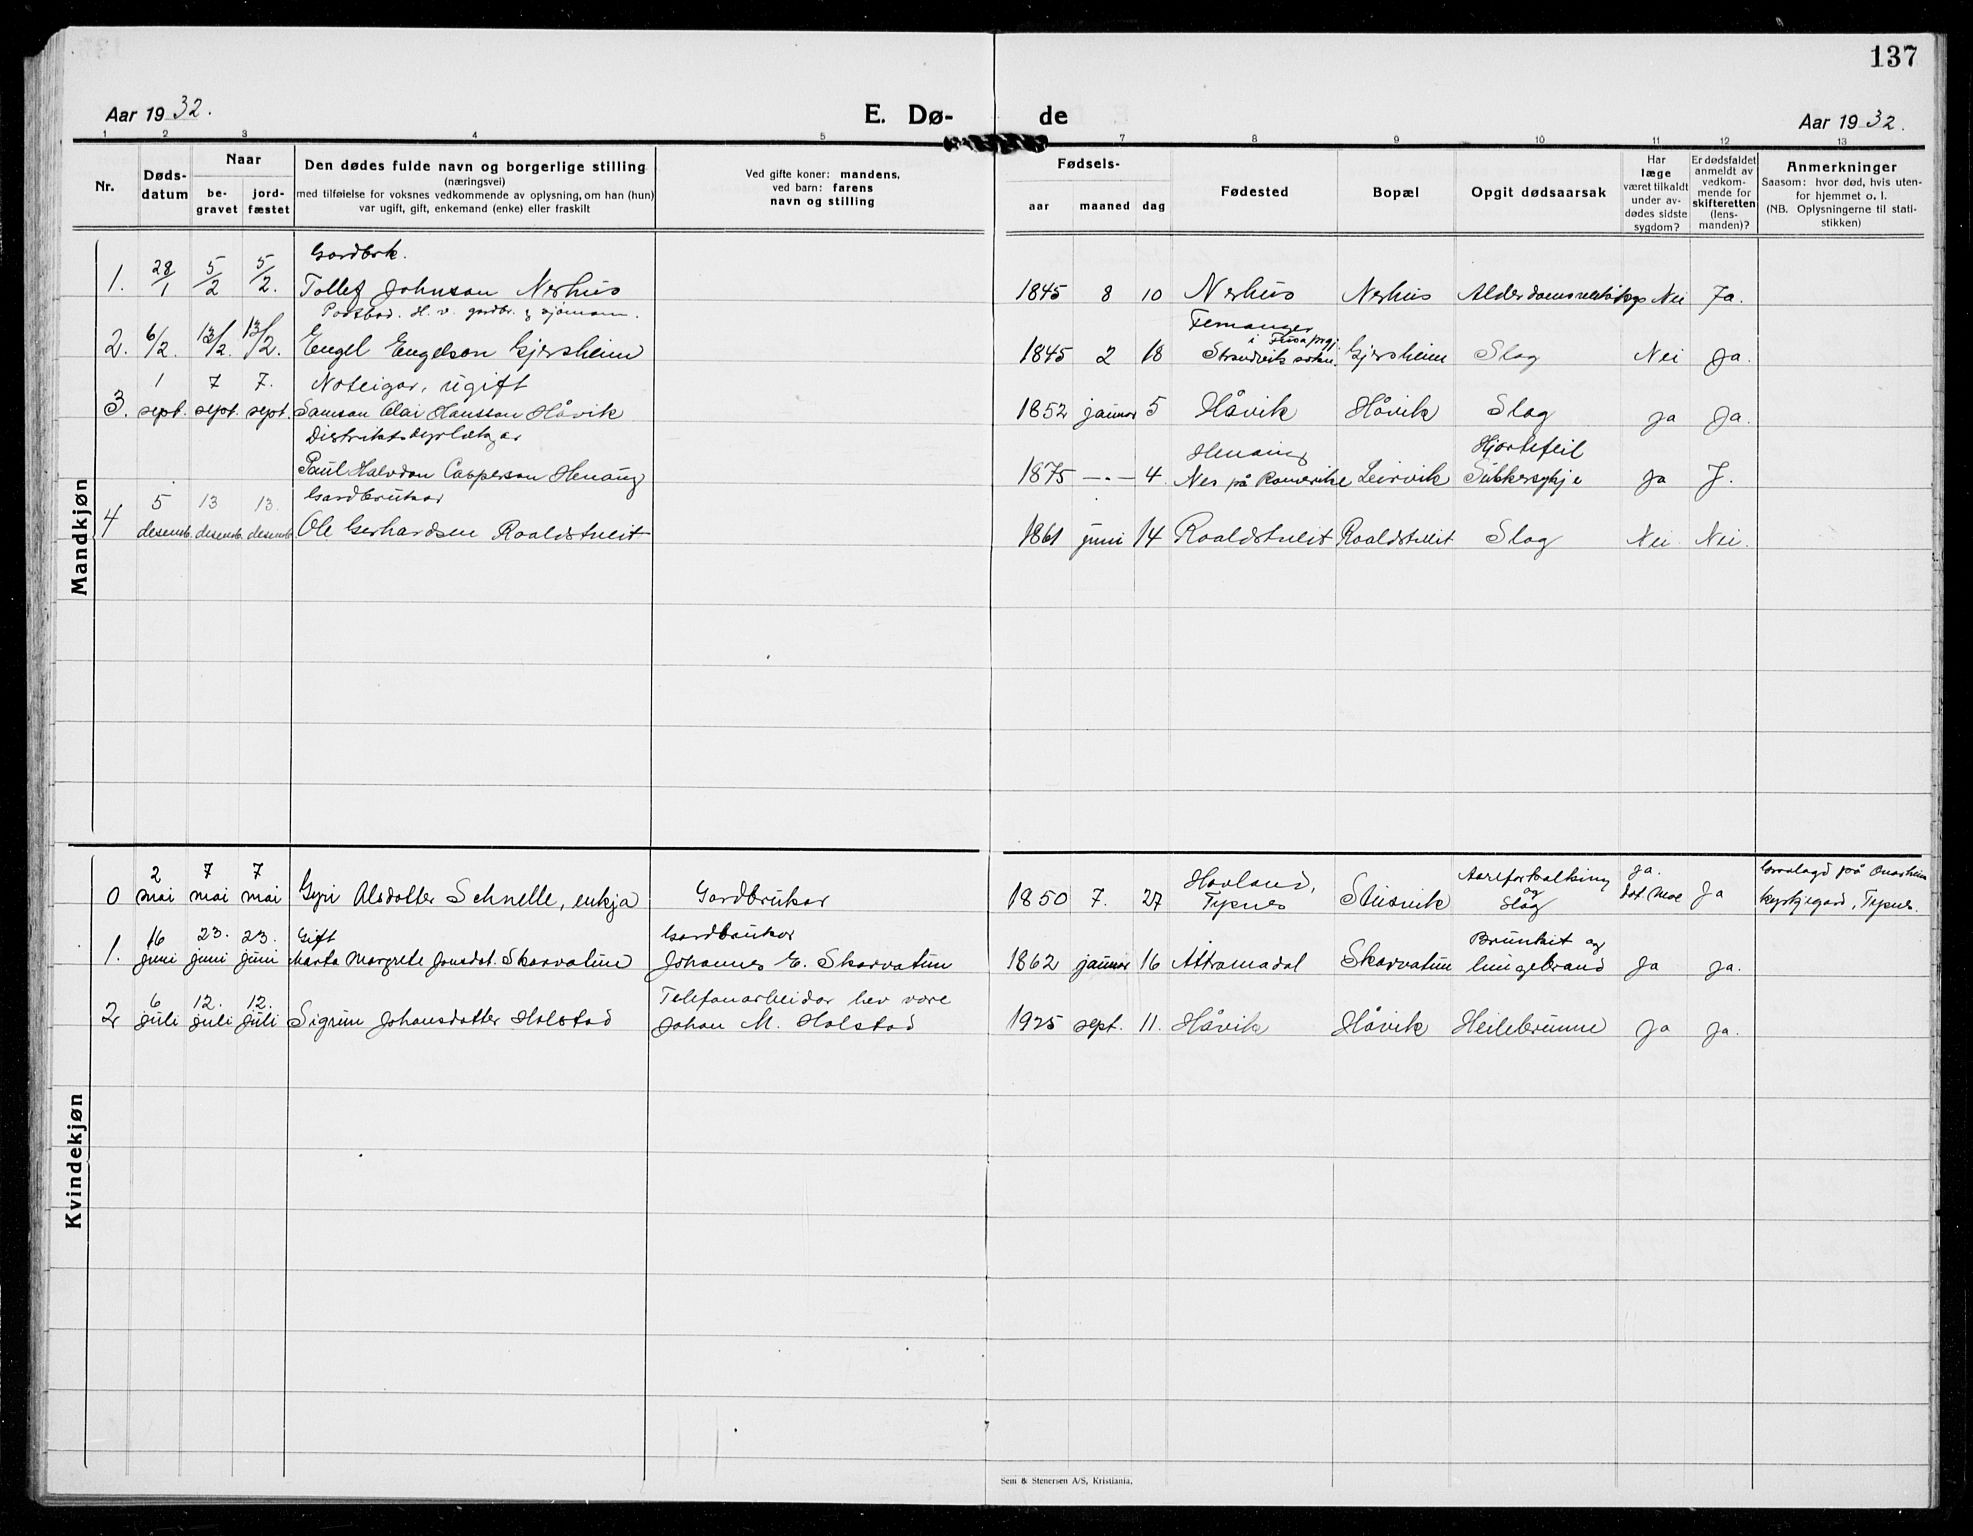 137
Aar 1932.
E. Dø-
de
Aar 1932.
1 2 3 4 5 7 8 9 10 11 12 13
Nr.
Døds-
datum
Naar
be-
gravet
jord-
fæstet
Den dødes fulde navn og borgerlige stilling
(næringsvei)
med tilføielse for voksnes vedkommende av oplysning, om han (hun)
var ugift, gift, enkemand (enke) eller fraskilt
Ved gifte koner: mandens,
ved barn: farens
navn og stilling
Fødsels-
aar maaned dag
Fødested
Bopæl
Opgit dødsaarsak
Har
læge
været tilkaldt
under av-
dødes sidste
sygdom?
Er dødsfaldet
anmeldt av
vedkom-
mende for
skifteretten
(lens-
manden)?
Anmerkninger
Saasom: hvor død, hvis uten-
for hjemmet o. l.
(NB. Oplysningerne til stati-
stikken)
Mandkjøn
Gardbrk.
1. 28/1 5/2 5/2. Tollef Johnson Nerhus 1845 8 10 Nerhus Nerhus Nei Ja.
H. v. gardbr. og sjømann.
Femanger
2. 6/2. 13/2. 13/2. Engel Engelson Gjersheim 1845 2 18 Strandvik sokn. Gjersheim Slag Nei Ja.
1 7 7. Noteigar, ugift
3. sept. sept. sept. Samson Olai Hansson Håvik 1852 januar 5 Håvik Håvik Slag Ja Ja.
Distriktsdyrlækjar Henaug Hjartefeil
Paul Halvdan Casperson Henaug 1875 -.- 4 Nes på Romerike Leirvik Sukkersykje Ja J.
5 13 13. Gardbrukar
4 desemb. desemb. desemb. Ole Gerhardsen Roaldstveit 1861 juni 14 Roaldstveit Roaldstveit Slag Nei Nei.
Kvindekjøn
2 7 7 Hovland, Aareforkalking Ja.
0 mai mai mai Gyri Alsdotter Schnelle, enkja Gardbrukar 1850 7. 27 Tysnes og Slag Ja
på Onarheim
kyrkjegard, Tysnes.
16 23. 23. Gift Gardbrukar Brunkit og
1. juni juni juni Marta Margrete Jonsdot. Skarvatun Johannes E. Skarvatun 1862 januar 16 Attramadal Skarvatun lungebrand Ja Ja.
6 12. 12. Telefonarbeidar hev vore
2 juli juli juli Sigrun Johansdotter Holstad Johan M. Holstad 1925 sept. 11. Håvik Håvik Heilebrunne Ja Ja.
Sem & Stenersen A/S, Kristiania.